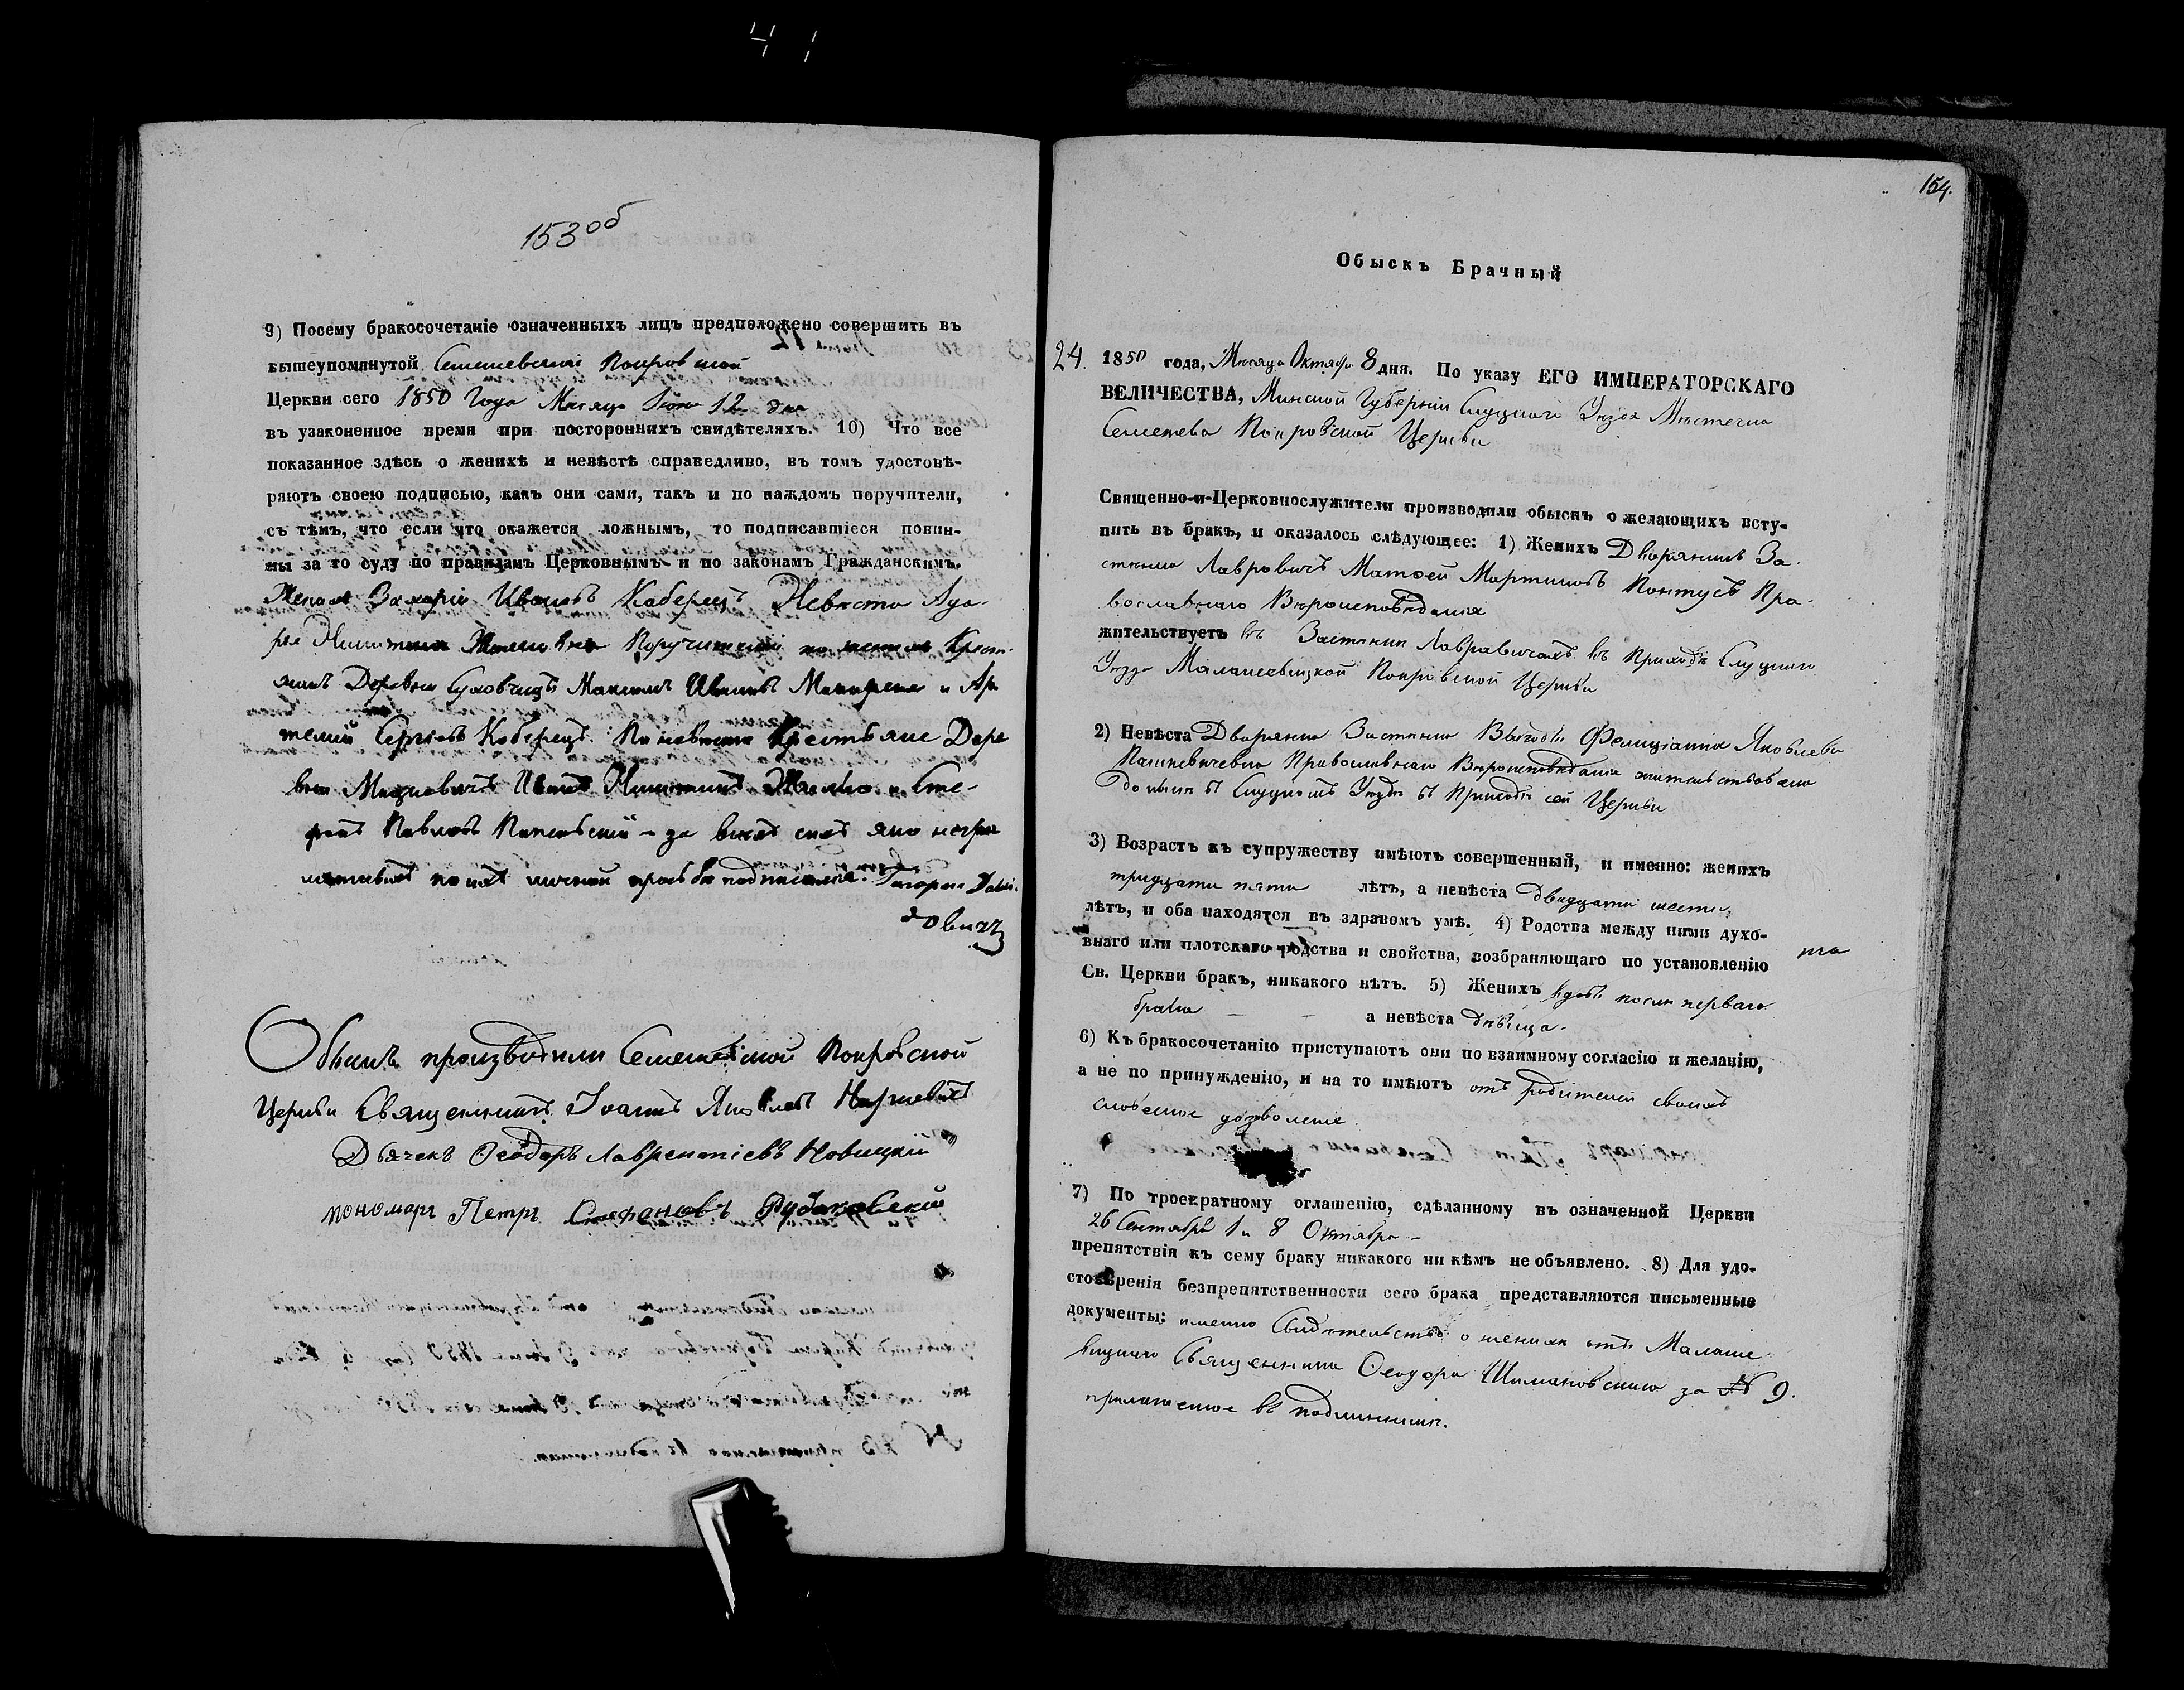 153об
9) Посему бракосочетаніе означенныхъ лицъ предположено совершить въ
вышеупомянутой Семежевской Покровской
Церкви сего 1850 Года Мѣсяца Іюня 12 дня
въ узаконенное время при постороннихъ свидѣтеляхъ. 10) Что все
показанное здѣсь о женихѣ и невѣстѣ справедливо, въ томъ удостовѣ-
ряютъ своею подписью, какъ они сами, такъ и по каждомъ поручители,
съ тѣмъ, что если что окажется ложнымъ, то подписавшіеся повин-
ны за то суду по правиламъ Церковнымъ и по законамъ Гражданскимъ.
Женихъ Захарія Ивановъ Каберецъ Невѣста
Поручители по женихѣ Крестя-
Деревни Максимъ Ивановъ и Ар-
темій Сергѣевъ Каберецъ. По невѣстѣ Крестьяне Дере
вни Сте-
фанъ Павловъ за всѣхъ ихъ яко негра
мотныхъ по ихъ личной прозьбѣ подписался
довичъ
Обыскъ производили Семежевской Покровской
Церкви Священникъ Іоаннъ Яковлевъ
Дьячекъ Ѳеодоръ Лаврентіевъ Новицкій
пономарь Петръ Стефановъ Рубановскій
154.
Обыскъ Брачный
24. 1850 года, Мѣсяца Октября 8 дня. По указу ЕГО ИМПЕРАТОРСКАГО
ВЕЛИЧЕСТВА, Минской Губерніи Слуцкаго Уѣзда Мѣстечка
Семежева Покровской Церкви
Священно-и-Церковнослужители производили обыскъ о желающихъ всту-
пить въ бракъ, и оказалось слѣдующее: 1) Женихъ Дворянинъ За-
стѣнка Лавровичъ Матѳей Мартиновъ Понтусъ Пра-
вославнаго Вѣроисповѣданія
жительствуетъ въ Застѣнкѣ Лавравичахъ въ Приходѣ Слуцкаго
Уѣзда Малашевицкой Покровской Церкви
2) Невѣста Дворянка Застѣнка Выгоды Фелиціанна Яковлева
Пашкевичевна Православнаго Вѣроисповѣданія жительствовала
донынѣ въ Слуцкомъ Уѣздѣ въ Приходѣ сей Церкви
3) Возрастъ къ супружеству имѣютъ совершенный, и именно: женихъ
тридцати пяти лѣтъ, а невѣста двадцати шести
лѣтъ, и оба находятся въ здравомъ умѣ. 4) Родства между ними духо-
внаго или плотскаго родства и свойства, возбраняющаго по установленію
Св. Церкви бракъ, никакого нѣтъ. 5) Женихъ вдовъ послѣ перваго
брака а невѣста дѣвица.
6) Къ бракосочетанію приступаютъ они по взаимному согласію и желанію,
а не по принужденію, и на то имѣютъ отъ родителей своихъ
словесное дозволеніе
7) По троекратному оглашенію, сдѣланному въ означенной Церкви
26 Сентября 1 и 8 Октября
препятствія къ сему браку никакого ни кѣмъ не объявлено. 8) Для удо-
стовѣренія безпрепятственности сего брака представляются письменные
документы; именно Свидѣтельство о женихѣ отъ Малаше
вицкаго Священника Ѳеодора Шимановскаго за № 9.
приложенное въ подлинникѣ.